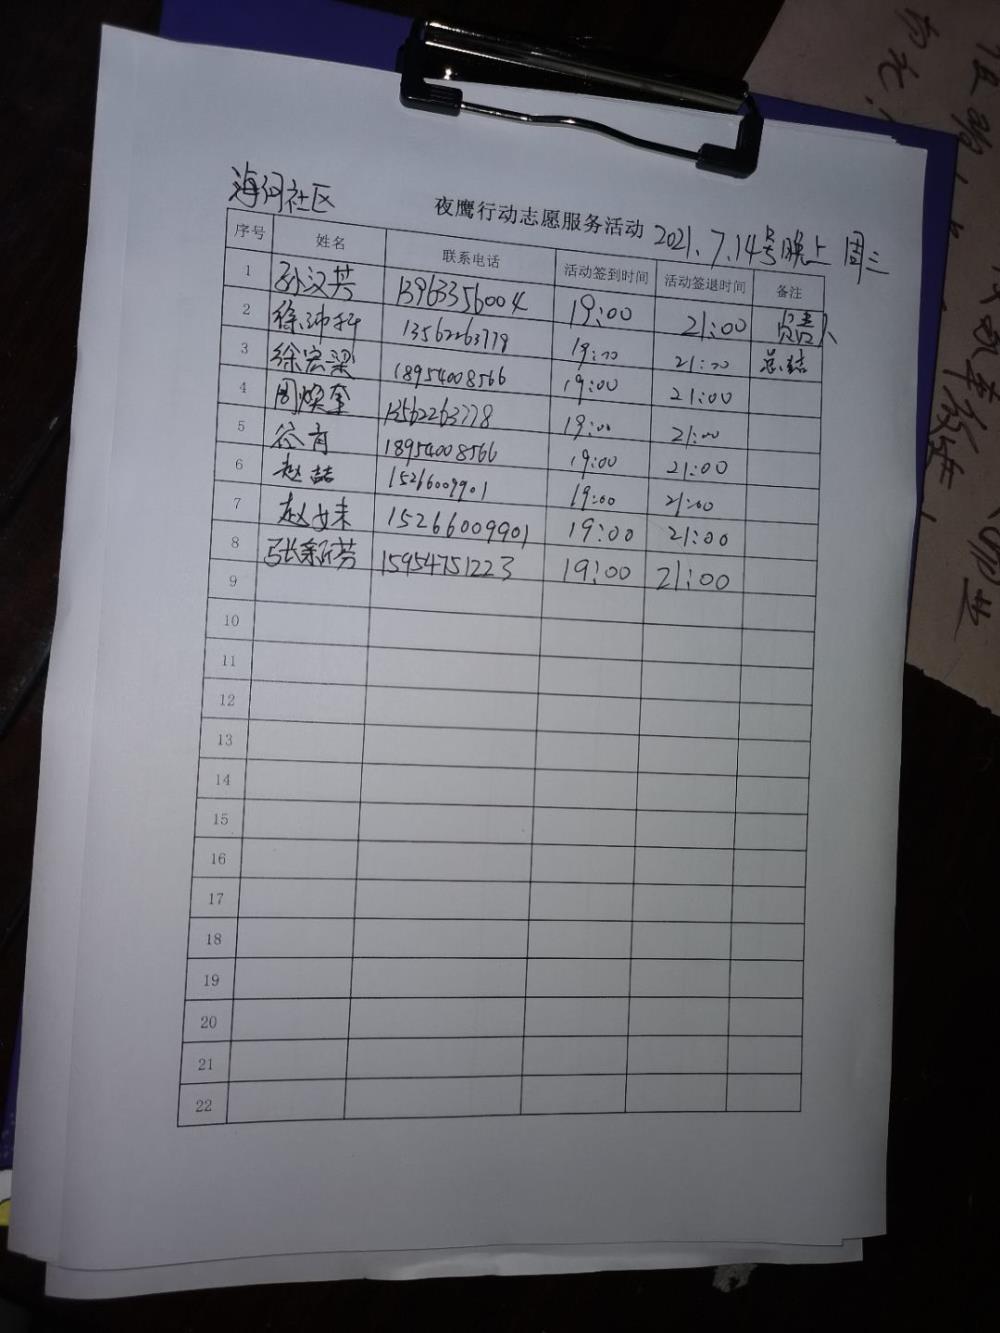 海河社区
夜鹰行动志愿服务活动 2021.7.14号晚上 周三
序号 姓名 联系电话 活动签到时间 活动签退时间 备注
1 孙汉芳 13963356004 19:00 21:00 负责人
2 徐沛轩 13562263779 19:00 21:00 总结
3 徐宏梁 18954008566 19:00 21:00
4 周焕奎 13562263778 19:00 21:00
5 谷育 18954008566 19:00 21:00
6 赵喆 15266009901 19:00 21:00
7 赵 15266009901 19:00 21:00
8 张新芳 15954751223 19:00 21:00
9
10
11
12
13
14
15
16
17
18
19
20
21
22